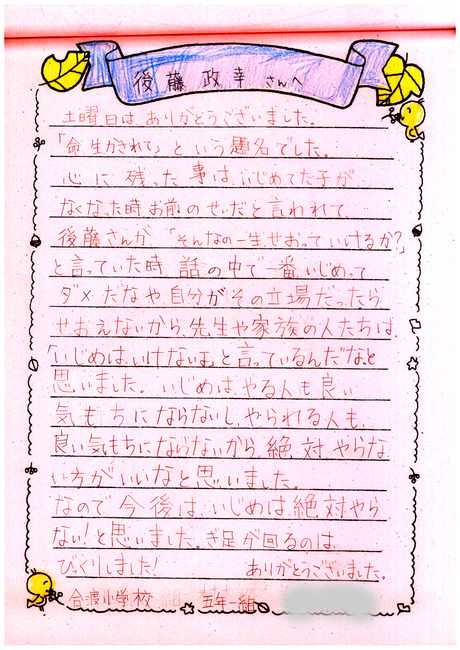 後藤政幸さんへ
土曜日は、ありがとうございました。
「命生かされて」という題名でした。
心に残った事は、いじめてた子が
なくなった時お前のせいだと言われて、
後藤さんが、「そんなの一生せおっていけるか?」
と言っていた時、話の中で一番、いじめって
ダメだなや、自分がその立場だったら、
せおえないから、先生や家族の人たちは、
「いじめは、いけないよ」と言っているんだなと
思いました。いじめは、やる人も良い
気もちにならないし、やられる人も、
良い気もちにならないから、絶対、やらな
い方がいいなと思いました。
なので、今後は、いじめは、絶対やら
ない!と思いました。ぎ足が回るのは、
びっくりしました! ありがとうございました。
合渡小学校 五年一組